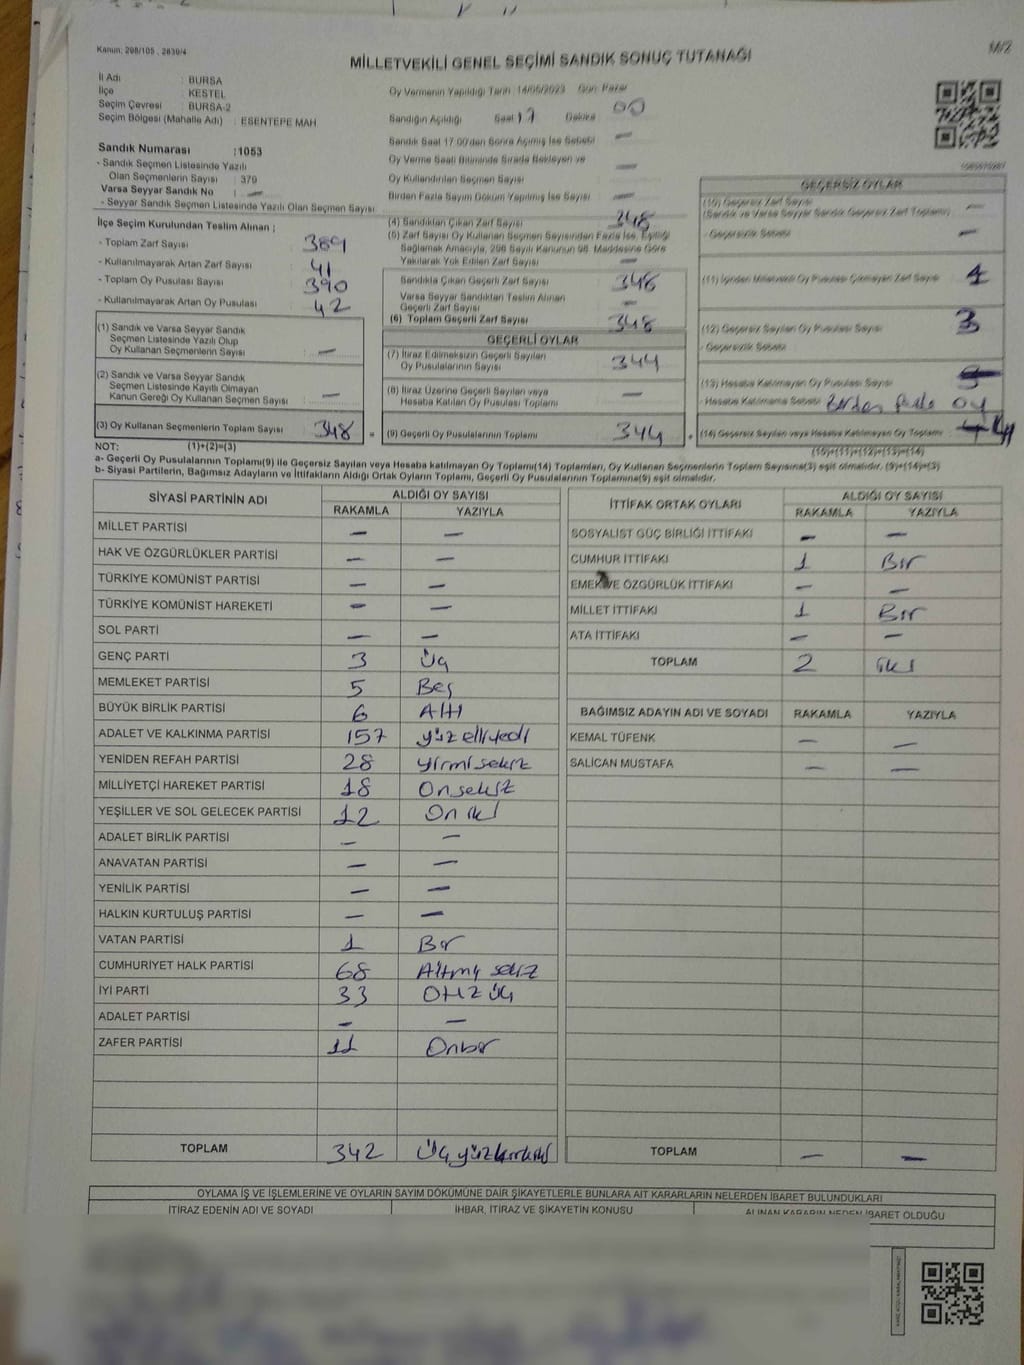 Kanun: 298/105 , 2839/4
M/2
MİLLETVEKİLİ GENEL SEÇİMİ SANDIK SONUÇ TUTANAĞI
İl Adı : BURSA
İlçe : KESTEL
Seçim Çevresi : BURSA-2
Seçim Bölgesi (Mahalle Adı) : ESENTEPE MAH
Sandık Numarası :1053
- Sandık Seçmen Listesinde Yazılı
Olan Seçmenlerin Sayısı : 379
Varsa Seyyar Sandık No : —
- Seyyar Sandık Seçmen Listesinde Yazılı Olan Seçmen Sayısı
Oy Vermenin Yapıldığı Tarih : 14/05/2023 Gün: Pazar
Sandığın Açıldığı Saat 17 Dakika 00
Sandık Saat 17.00'den Sonra Açılmış İse Sebebi —
Oy Verme Saati Bitiminde Sırada Bekleyen ve
Oy Kullandırılan Seçmen Sayısı —
Birden Fazla Sayım Döküm Yapılmış İse Sayısı —
İlçe Seçim Kurulundan Teslim Alınan ;
- Toplam Zarf Sayısı 389
- Kullanılmayarak Artan Zarf Sayısı 41
- Toplam Oy Pusulası Sayısı 390
- Kullanılmayarak Artan Oy Pusulası 42
(1) Sandık ve Varsa Seyyar Sandık
Seçmen Listesinde Yazılı Olup
Oy Kullanan Seçmenlerin Sayısı —
(2) Sandık ve Varsa Seyyar Sandık
Seçmen Listesinde Kayıtlı Olmayan
Kanun Gereği Oy Kullanan Seçmen Sayısı —
(3) Oy Kullanan Seçmenlerin Toplam Sayısı 348 =
(1)+(2)=(3)
(4) Sandıktan Çıkan Zarf Sayısı 348
(5) Zarf Sayısı Oy Kullanan Seçmen Sayısından Fazla İse, Eşitliği
Sağlamak Amacıyla, 298 Sayılı Kanunun 98. Maddesine Göre
Yakılarak Yok Edilen Zarf Sayısı —
Sandıkta Çıkan Geçerli Zarf Sayısı 348
Varsa Seyyar Sandıktan Teslim Alınan
Geçerli Zarf Sayısı —
(6) Toplam Geçerli Zarf Sayısı 348
GEÇERLİ OYLAR
(7) İtiraz Edilmeksizin Geçerli Sayılan
Oy Pusulalarının Sayısı 344
(8) İtiraz Üzerine Geçerli Sayılan veya
Hesaba Katılan Oy Pusulası Toplamı —
(9) Geçerli Oy Pusulalarının Toplamı 344 +
GEÇERSİZ OYLAR
(10) Geçersiz Zarf Sayısı
(Sandık ve Varsa Seyyar Sandık Geçersiz Zarf Toplamı) —
- Geçersizlik Sebebi —
(11) İçinden Milletvekili Oy Pusulası Çıkmayan Zarf Sayısı 1
(12) Geçersiz Sayılan Oy Pusulası Sayısı 3
- Geçersizlik Sebebi
(13) Hesaba Katılmayan Oy Pusulası Sayısı
- Hesaba Katılmama Sebebi Birden fazla oy
(14) Geçersiz Sayılan veya Hesaba Katılmayan Oy Toplamı 4
(10)+(11)+(12)+(13)=(14)
NOT:
a- Geçerli Oy Pusulalarının Toplamı(9) ile Geçersiz Sayılan veya Hesaba katılmayan Oy Toplamı(14) Toplamları, Oy Kullanan Seçmenlerin Toplam Sayısına(3) eşit olmalıdır. (9)+(14)=(3)
b- Siyasi Partilerin, Bağımsız Adayların ve İttifakların Aldığı Ortak Oyların Toplamı, Geçerli Oy Pusulalarının Toplamına(9) eşit olmalıdır.
SİYASİ PARTİNİN ADI ALDIĞI OY SAYISI
RAKAMLA YAZIYLA
MİLLET PARTİSİ — —
HAK VE ÖZGÜRLÜKLER PARTİSİ — —
TÜRKİYE KOMÜNİST PARTİSİ — —
TÜRKİYE KOMÜNİST HAREKETİ — —
SOL PARTİ — —
GENÇ PARTİ 3 Üç
MEMLEKET PARTİSİ 5 Beş
BÜYÜK BİRLİK PARTİSİ 6 Altı
ADALET VE KALKINMA PARTİSİ 157 yüzelliyedi
YENİDEN REFAH PARTİSİ 28 yirmisekiz
MİLLİYETÇİ HAREKET PARTİSİ 18 Onsekiz
YEŞİLLER VE SOL GELECEK PARTİSİ 12 On iki
ADALET BİRLİK PARTİSİ — —
ANAVATAN PARTİSİ — —
YENİLİK PARTİSİ — —
HALKIN KURTULUŞ PARTİSİ — —
VATAN PARTİSİ 1 Bir
CUMHURİYET HALK PARTİSİ 68 Altmış sekiz
İYİ PARTİ 33 Otuz üç
ADALET PARTİSİ — —
ZAFER PARTİSİ 11 Onbir
TOPLAM 342 Üç yüzkırkiki
İTTİFAK ORTAK OYLARI ALDIĞI OY SAYISI
RAKAMLA YAZIYLA
SOSYALİST GÜÇ BİRLİĞİ İTTİFAKI — —
CUMHUR İTTİFAKI 1 Bir
EMEK VE ÖZGÜRLÜK İTTİFAKI — —
MİLLET İTTİFAKI 1 Bir
ATA İTTİFAKI — —
TOPLAM 2 iki
BAĞIMSIZ ADAYIN ADI VE SOYADI RAKAMLA YAZIYLA
KEMAL TÜFENK — —
SALİCAN MUSTAFA — —
TOPLAM — —
OYLAMA İŞ VE İŞLEMLERİNE VE OYLARIN SAYIM DÖKÜMÜNE DAİR ŞİKAYETLERLE BUNLARA AİT KARARLARIN NELERDEN İBARET BULUNDUKLARI
İTİRAZ EDENİN ADI VE SOYADI İHBAR, İTİRAZ VE ŞİKAYETİN KONUSU ALINAN KARARIN NEDEN İBARET OLDUĞU